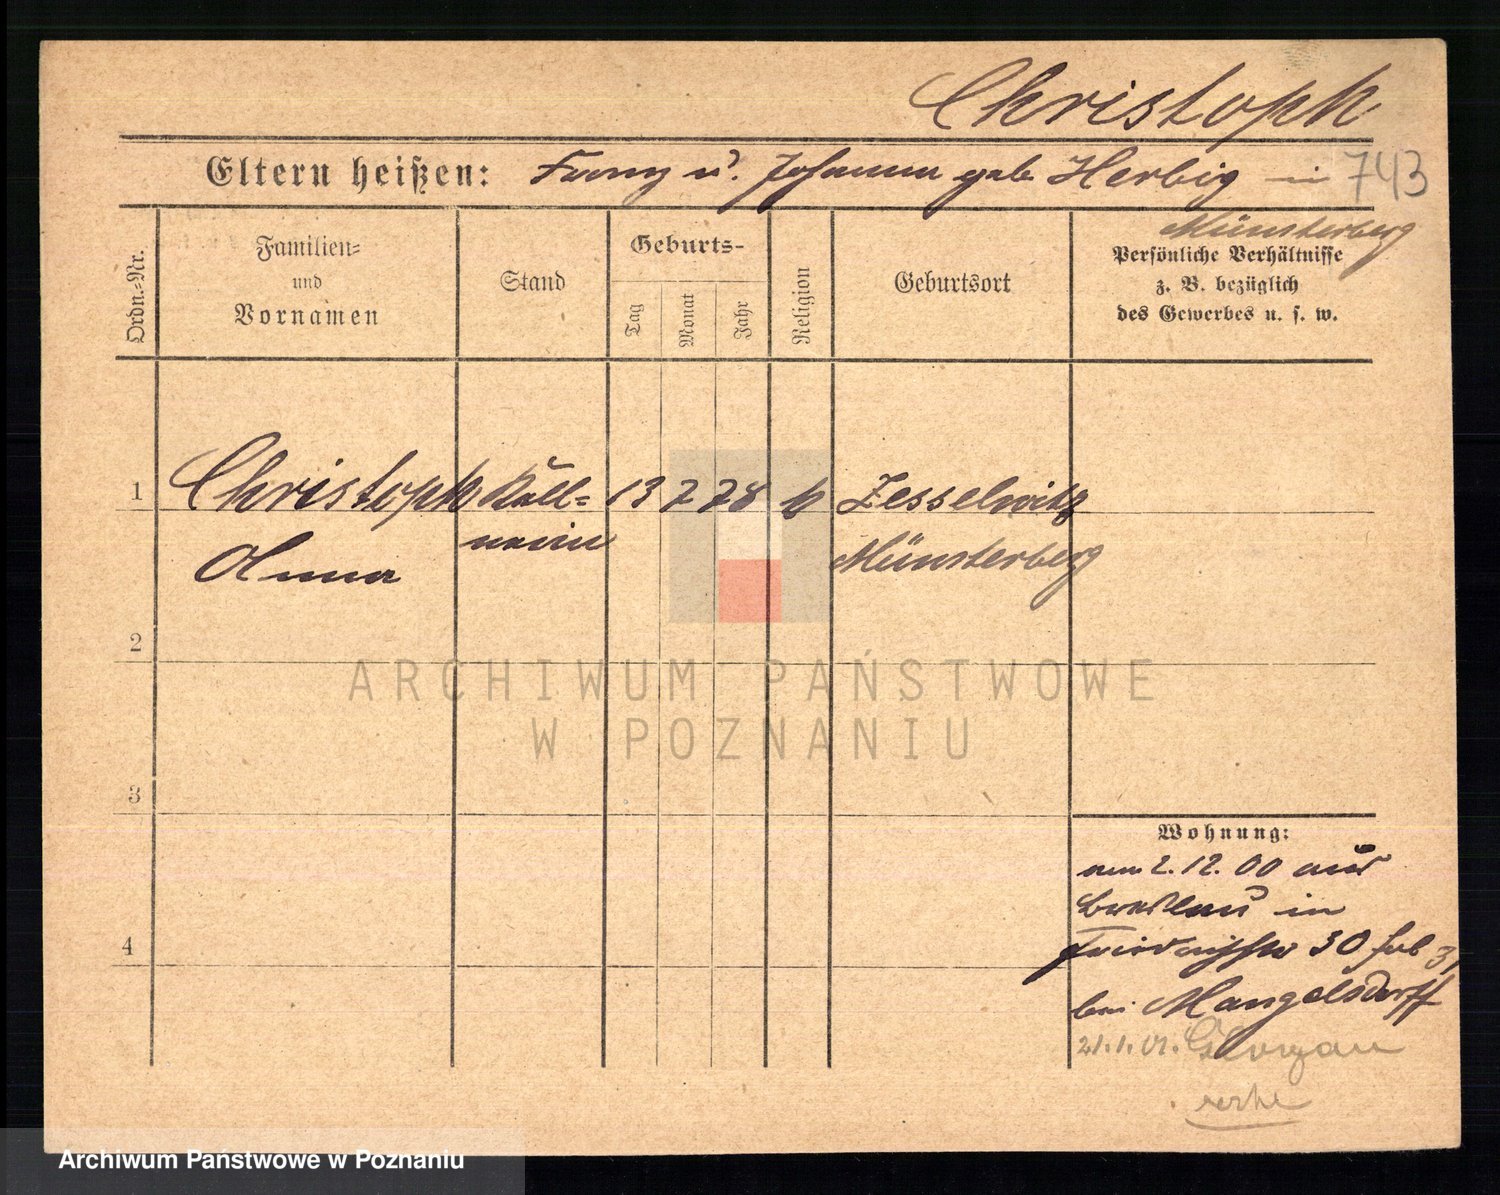 Christoph
Eltern heißen: Franz u. Johanna geb. Herbig in 743
Münsterberg
Ordn.-Nr.
Familien-
und
Vornamen
Stand
Geburts-
Tag
Monat
Jahr
Religion
Geburtsort
Persönliche Verhältnisse
z. B. bezüglich
des Gewerbes u. s. w.
1 Christoph Kell= 13 7 78 k Zesselwitz
Anna nerin Münsterberg
2
3
4
Wohnung:
am 2.12.00 aus
Breslau in
30
bei Mangelsdorff
21.1.01. Glogau
ARCHIWUM PAŃSTWOWE
W POZNANIU
Archiwum Państwowe w Poznaniu